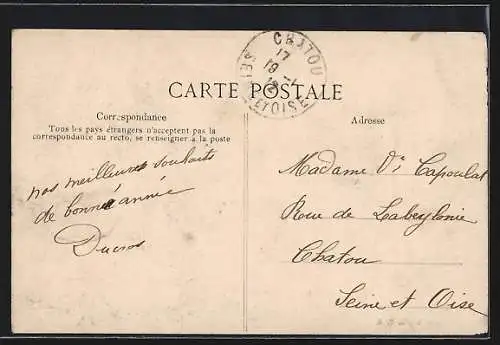 CHATOU
17
19 -1
12
SEINE-ET-OISE
CARTE POSTALE
Correspondance
Tous les pays étrangers n'acceptent pas la
correspondance au recto, se renseigner à la poste
Adresse
nos meilleurs souhaits
de bonne année
Ducros
Madame Vve Capoulat
Rue de Labeylonie
Chatou
Seine et Oise